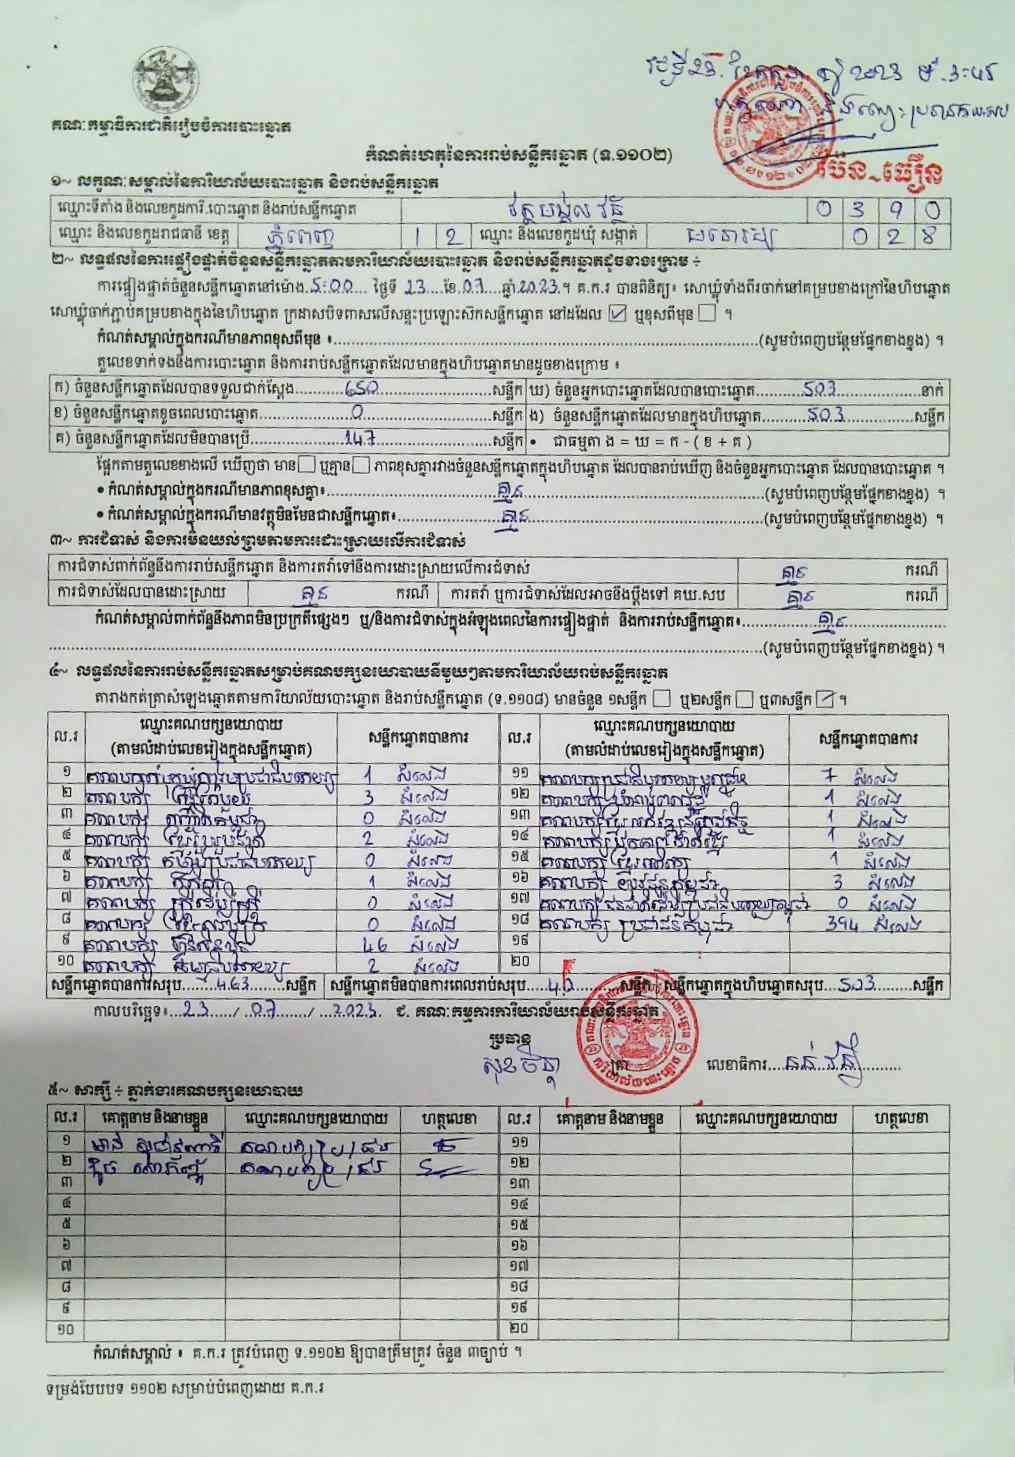 ថ្ងៃទី 23 ខែកក្កដា ឆ្នាំ 2023 ម៉ 3:45
គណៈកម្មាធិការជាតិរៀបចំការបោះឆ្នោត
ប៉ែន ធឿន
កំណត់ហេតុនៃការរាប់សន្លឹកឆ្នោត (ទ.១១០២)
១~ លក្ខណៈសម្គាល់នៃការិយាល័យបោះឆ្នោត និងរាប់សន្លឹកឆ្នោត
ឈ្មោះទីតាំង និងលេខកូដការិ.បោះឆ្នោត និងរាប់សន្លឹកឆ្នោត វត្តមង្គលវន្ត 0 3 9 0
ឈ្មោះ និងលេខកូដរាជធានី ខេត្ត ភ្នំពេញ 1 2 ឈ្មោះ និងលេខកូដឃុំ សង្កាត់ 0 2 8
២~ លទ្ធផលនៃការផ្ទៀងផ្ទាត់ចំនួនសន្លឹកឆ្នោតតាមការិយាល័យបោះឆ្នោត និងរាប់សន្លឹកឆ្នោតដូចខាងក្រោម ÷
ការផ្ទៀងផ្ទាត់ចំនួនសន្លឹកឆ្នោតនៅម៉ោង 5:00 ថ្ងៃទី 23 ខែ 07 ឆ្នាំ 2023 ។ គ.ក.រ បានពិនិត្យ៖ សោឃ្លុំទាំងពីរចាក់នៅគម្របខាងក្រៅនៃហិបឆ្នោត
សោឃ្លុំចាក់ភ្ជាប់គម្របខាងក្នុងនៃហិបឆ្នោត ក្រដាសបិទពាសលើសន្ទះប្រឡោះស៊កសន្លឹកឆ្នោត នៅដដែល ☑ ឬខុសពីមុន ☐ ។
កំណត់សម្គាល់ក្នុងករណីមានភាពខុសពីមុន ៖ (សូមបំពេញបន្ថែមផ្នែកខាងខ្នង) ។
តួលេខទាក់ទងនឹងការបោះឆ្នោត និងការរាប់សន្លឹកឆ្នោតដែលមានក្នុងហិបឆ្នោតមានដូចខាងក្រោម ៖
ក) ចំនួនសន្លឹកឆ្នោតដែលបានទទួលជាក់ស្តែង 650 សន្លឹក ឃ) ចំនួនអ្នកបោះឆ្នោតដែលបានបោះឆ្នោត 503 នាក់
ខ) ចំនួនសន្លឹកឆ្នោតខូចពេលបោះឆ្នោត 0 សន្លឹក ង) ចំនួនសន្លឹកឆ្នោតដែលមានក្នុងហិបឆ្នោត 503 សន្លឹក
គ) ចំនួនសន្លឹកឆ្នោតដែលមិនបានប្រើ 147 សន្លឹក • ជាធម្មតា ង = ឃ = ក - ( ខ + គ )
ផ្អែកតាមតួលេខខាងលើ ឃើញថា មាន ☐ ឬគ្មាន ☐ ភាពខុសគ្នារវាងចំនួនសន្លឹកឆ្នោតក្នុងហិបឆ្នោត ដែលបានរាប់ឃើញ និងចំនួនអ្នកបោះឆ្នោត ដែលបានបោះឆ្នោត ។
• កំណត់សម្គាល់ក្នុងករណីមានភាពខុសគ្នា៖ គ្មាន (សូមបំពេញបន្ថែមផ្នែកខាងខ្នង) ។
• កំណត់សម្គាល់ក្នុងករណីមានវត្ថុមិនមែនជាសន្លឹកឆ្នោត៖ គ្មាន (សូមបំពេញបន្ថែមផ្នែកខាងខ្នង) ។
៣~ ការជំទាស់ និងការមិនយល់ព្រមតាមការដោះស្រាយលើការជំទាស់
ការជំទាស់ពាក់ព័ន្ធនឹងការរាប់សន្លឹកឆ្នោត និងការតវ៉ាទៅនឹងការដោះស្រាយលើការជំទាស់ គ្មាន ករណី
ការជំទាស់ដែលបានដោះស្រាយ គ្មាន ករណី ការតវ៉ា ឬការជំទាស់ដែលអាចនឹងប្តឹងទៅ គឃ.សប គ្មាន ករណី
កំណត់សម្គាល់ពាក់ព័ន្ធនឹងភាពមិនប្រក្រតីផ្សេងៗ ឬ/និងការជំទាស់ក្នុងអំឡុងពេលនៃការផ្ទៀងផ្ទាត់ និងការរាប់សន្លឹកឆ្នោត៖ គ្មាន
(សូមបំពេញបន្ថែមផ្នែកខាងខ្នង) ។
៤~ លទ្ធផលនៃការរាប់សន្លឹកឆ្នោតសម្រាប់គណបក្សនយោបាយនីមួយៗតាមការិយាល័យរាប់សន្លឹកឆ្នោត
តារាងកត់ត្រាសំឡេងឆ្នោតតាមការិយាល័យបោះឆ្នោត និងរាប់សន្លឹកឆ្នោត (ទ.១១០៨) មានចំនួន ១សន្លឹក ☐ ឬ២សន្លឹក ☐ ឬ៣សន្លឹក ☑ ។
ល.រ ឈ្មោះគណបក្សនយោបាយ (តាមលំដាប់លេខរៀងក្នុងសន្លឹកឆ្នោត) សន្លឹកឆ្នោតបានការ ល.រ ឈ្មោះគណបក្សនយោបាយ (តាមលំដាប់លេខរៀងក្នុងសន្លឹកឆ្នោត) សន្លឹកឆ្នោតបានការ
១ 1 សំលេង ១១ 7 សំលេង
២ គណបក្ស 3 សំលេង ១២ គណបក្ស 1 សំលេង
៣ គណបក្ស 0 សំលេង ១៣ គណបក្ស 1 សំលេង
៤ គណបក្ស ខ្មែររួបរួមជាតិ 2 សំលេង ១៤ គណបក្ស 1 សំលេង
៥ គណបក្ស 0 សំលេង ១៥ គណបក្ស 1 សំលេង
៦ គណបក្ស 1 សំលេង ១៦ គណបក្ស យុវជនកម្ពុជា 3 សំលេង
៧ គណបក្ស 0 សំលេង ១៧ គណបក្ស 0 សំលេង
៨ គណបក្ស 0 សំលេង ១៨ គណបក្ស ប្រជាជនកម្ពុជា 394 សំលេង
៩ គណបក្ស ហ៊្វុនស៊ិនប៉ិច 46 សំលេង ១៩
១០ គណបក្ស 2 សំលេង ២០
សន្លឹកឆ្នោតបានការសរុប 463 សន្លឹក សន្លឹកឆ្នោតមិនបានការពេលរាប់សរុប 40 សន្លឹក សន្លឹកឆ្នោតក្នុងហិបឆ្នោតសរុប 503 សន្លឹក
កាលបរិច្ឆេទ៖ 23 / 07 / 2023 ជ. គណៈកម្មការការិយាល័យរាប់សន្លឹកឆ្នោត
ប្រធាន
សុខ ចិន្តា ត្រា លេខាធិការ
៥~ សាក្សី ÷ ភ្នាក់ងារគណបក្សនយោបាយ
ល.រ គោត្តនាម និងនាមខ្លួន ឈ្មោះគណបក្សនយោបាយ ហត្ថលេខា ល.រ គោត្តនាម និងនាមខ្លួន ឈ្មោះគណបក្សនយោបាយ ហត្ថលេខា
១ ១១
២ ១២
៣ ១៣
៤ ១៤
៥ ១៥
៦ ១៦
៧ ១៧
៨ ១៨
៩ ១៩
១០ ២០
កំណត់សម្គាល់ ៖ គ.ក.រ ត្រូវបំពេញ ទ.១១០២ ឱ្យបានត្រឹមត្រូវ ចំនួន ៣ច្បាប់ ។
ទម្រង់បែបបទ ១១០២ សម្រាប់បំពេញដោយ គ.ក.រ